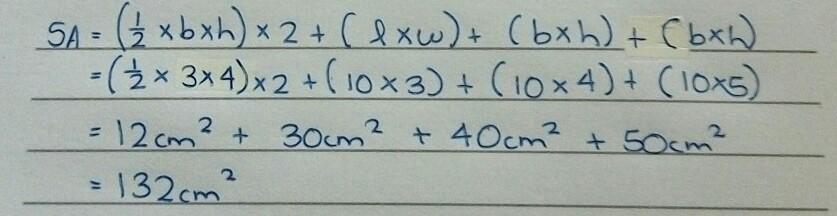 SA = (½ × b×h) × 2 + (l×w) + (b×h) + (b×h)
= (½ × 3×4) × 2 + (10×3) + (10×4) + (10×5)
= 12cm² + 30cm² + 40cm² + 50cm²
= 132cm²